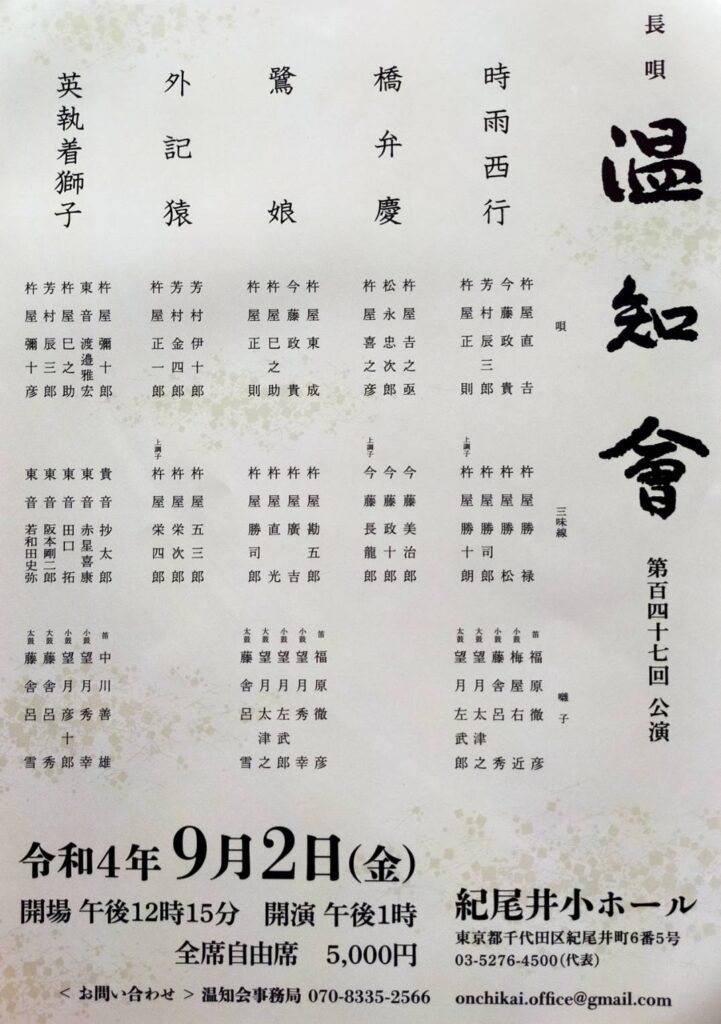 長唄
温知會
第百四十七回 公演
唄
三味線
囃子
時雨西行
杵屋直吉
今藤政貴
芳村辰三郎
杵屋正則
杵屋勝禄
杵屋勝松
杵屋勝司郎
上調子 杵屋勝十朗
笛 福原徹彦
小鼓 梅屋右近
小鼓 藤舎呂秀
大鼓 望月太津之
太鼓 望月左武郎
橋弁慶
杵屋吉之亟
松永忠次郎
杵屋喜之彦
今藤美治郎
今藤政十郎
上調子 今藤長龍郎
鷺娘
杵屋東成
今藤政貴
杵屋巳之助
杵屋正則
杵屋勘五郎
杵屋廣吉
杵屋直光
杵屋勝司郎
笛 福原徹彦
小鼓 望月秀幸
小鼓 望月左武郎
大鼓 望月太津之
太鼓 藤舎呂雪
外記猿
芳村伊十郎
芳村金四郎
杵屋正一郎
杵屋五三郎
杵屋栄次郎
上調子 杵屋栄四郎
英執着獅子
杵屋彌十郎
東音渡邉雅宏
杵屋巳之助
芳村辰三郎
杵屋彌十彦
貴音抄太郎
東音赤星喜康
東音田口拓
東音阪本剛二郎
東音若和田史弥
笛 中川善雄
小鼓 望月秀幸
小鼓 望月彦十郎
大鼓 藤舎呂秀
太鼓 藤舎呂雪
令和4年 9月2日(金)
開場 午後12時15分 開演 午後1時
全席自由席 5,000円
紀尾井小ホール
東京都千代田区紀尾井町6番5号
03-5276-4500(代表)
< お問い合わせ > 温知会事務局 070-8335-2566
onchikai.office@gmail.com